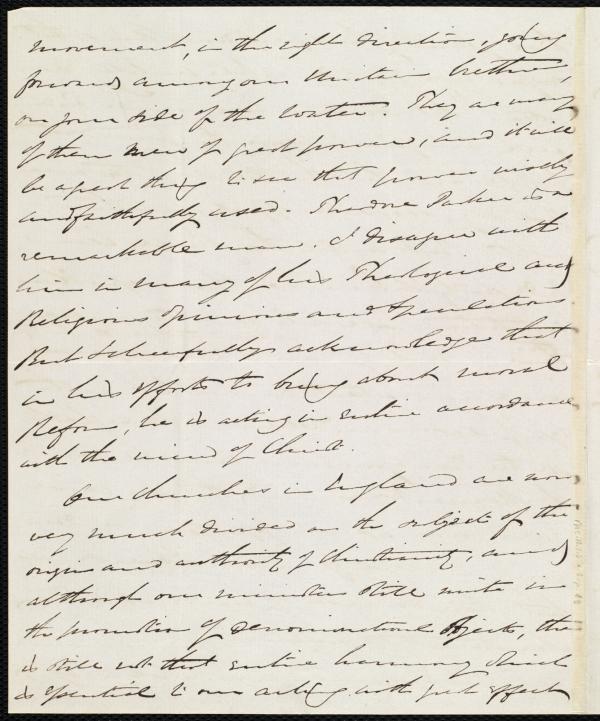 movement, in the right direction, going
forward among our Unitarian brethren,
on your side of the water. They are many
of them men of great power, and it will
be a great thing to see that power wisely
and faithfully used. Theodore Parker is a
remarkable man. I disagree with
him in many of his Theological and
Religious Opinions and Speculations.
But I cheerfully acknowledge that
in his efforts to bring about moral
Reform, he is acting in entire accordance
with the mind of Christ.
Our Churches in England are now
very much divided on the subject of the
origin and authority of Christianity, and
although our ministers still unite in
the promotion of denominational objects, there
is still not that entire harmony which
is essential to our acting with just effect